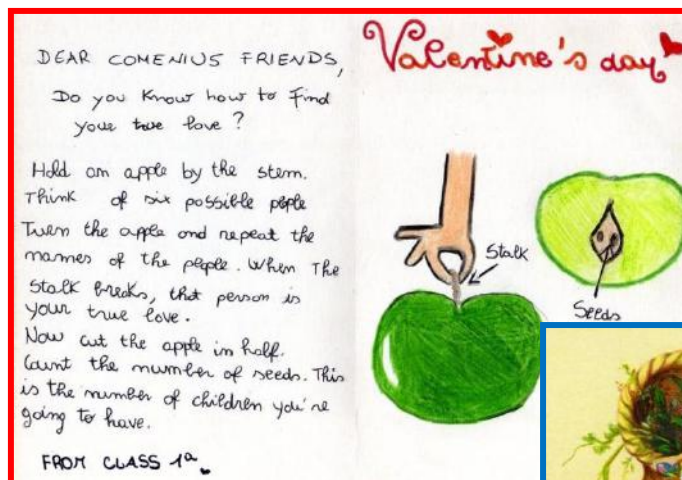 DEAR COMENIUS FRIENDS,
Do you know how to find
your true love?
Hold an apple by the stem.
Think of six possible pople
Turn the apple and repeat the
names of the people. When The
stalk breaks, that person is
your true love.
Now cut the apple in half.
Count the number of seeds. This
is the number of children you're
going to have.
FROM CLASS 1a
Valentine's day
Stalk
Seeds